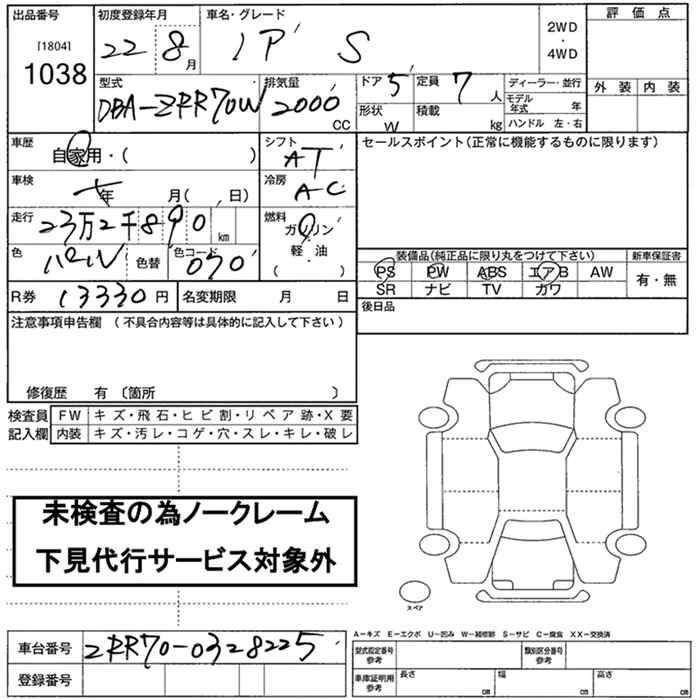 出品番号 初度登録年月 車名・グレード 評価点
[1804]
1038
22 8月
2WD
・
4WD
外装 内装
型式 排気量 ドア 5 定員 7人 ディーラー・並行
DBA-ZRR70W 2000 CC
形状 W 積載 kg
モデル年式 年
ハンドル 左・右
車歴 自家用・( )
シフト AT
セールスポイント(正常に機能するものに限ります)
車検 年 月( , 日)
冷房 AC
走行 23万2千890 km
燃料 ガソリン
軽・油
( ・ )
色 パール 色替 色コード 070
装備品(純正品に限り丸をつけて下さい) 新車保証書
PS PW ABS エアB AW 有・無
SR ナビ TV カワ
R券 13330円 名変期限 月 日
後日品
注意事項申告欄 (不具合内容等は具体的に記入して下さい)
修復歴 有 〔箇所 〕
検査員 FW キズ・飛石・ヒビ割・リペア跡・X要
記入欄 内装 キズ・汚レ・コゲ・穴・スレ・キレ・破レ
未検査の為ノークレーム
下見代行サービス対象外
スペア
A-キズ E-エクボ U-凹み W-補修跡 S-サビ C-腐食 XX-交換済
車台番号 ZRR70-0328225
登録番号
型式指定番号 参考 類別区分番号 参考
車庫証明用 参考 長さ cm 幅 cm 高さ cm